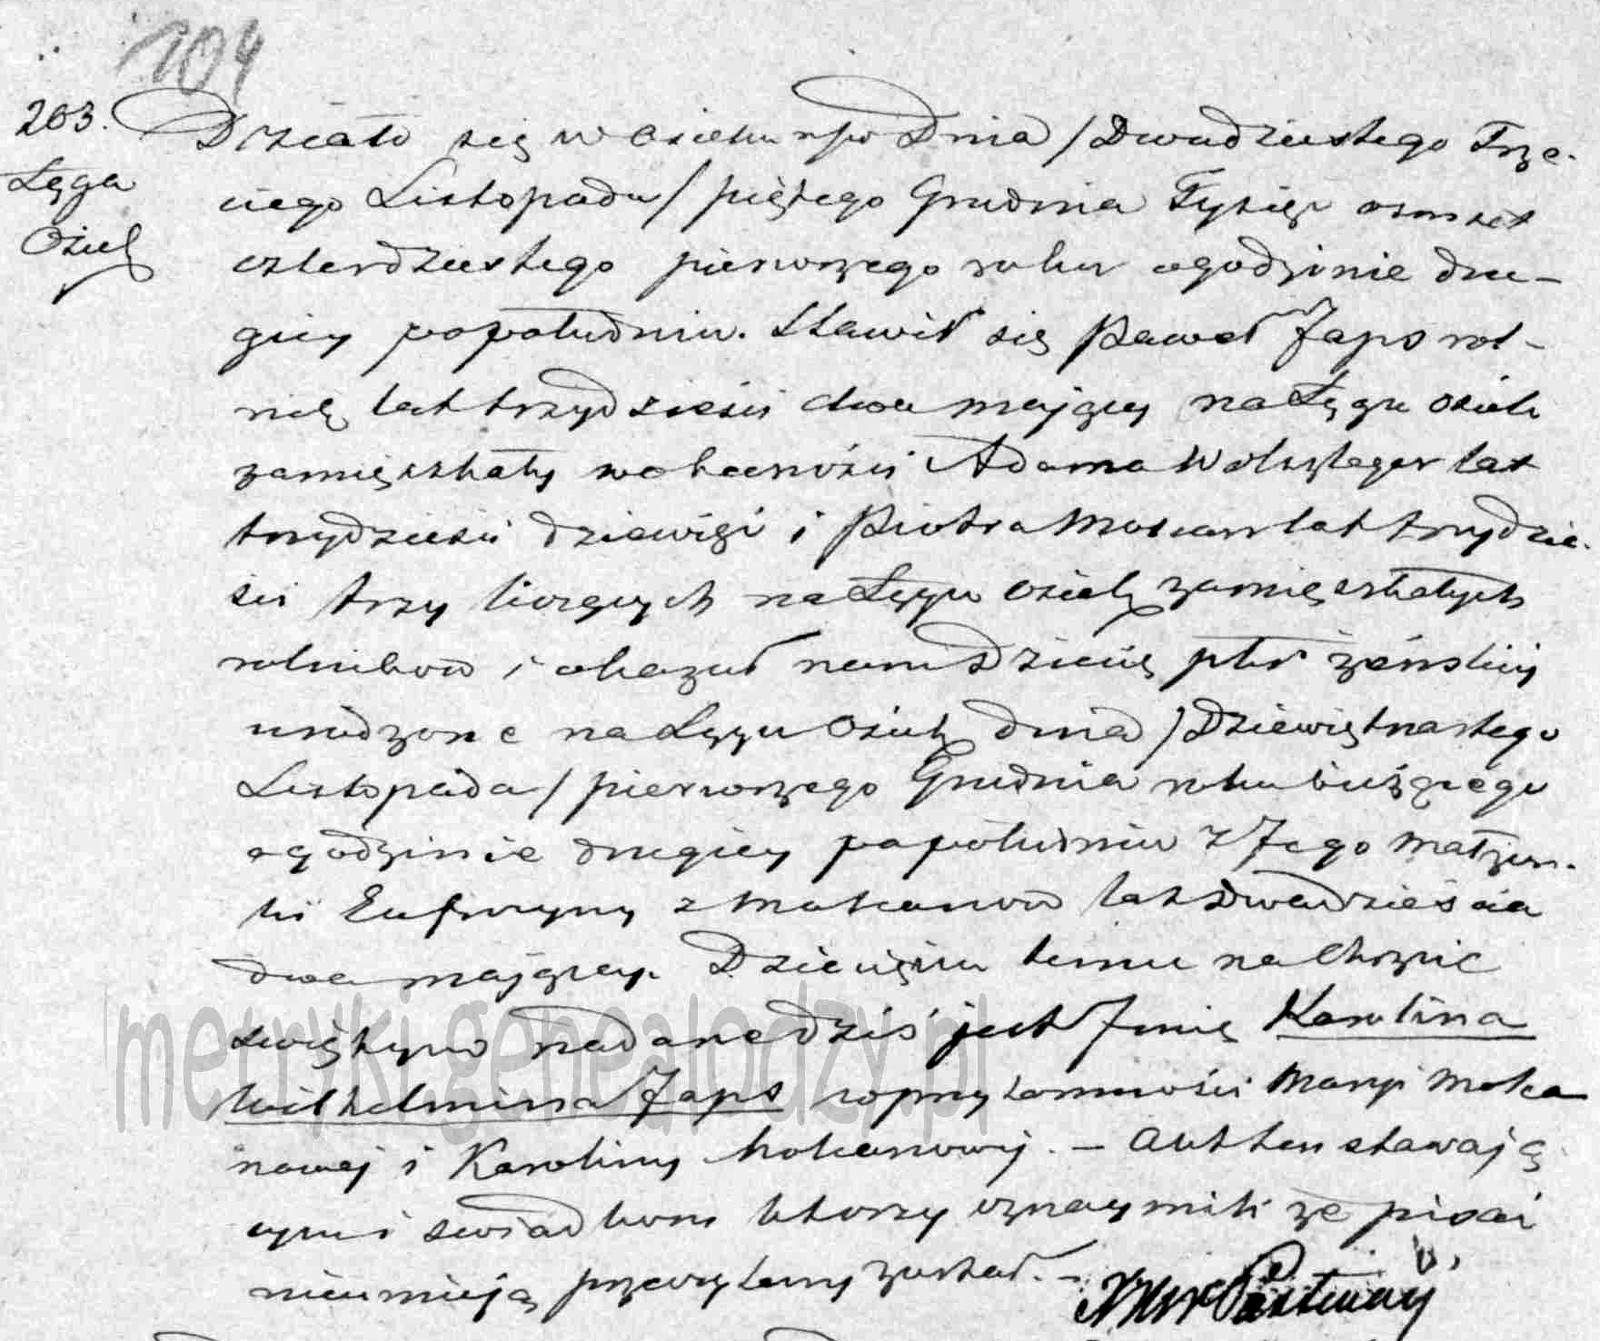 104
263.
Łęga
Osiek
Działo się w Osieku npw Dnia / Dwudziestego Trze-
ciego Listopada / piątego Grudnia Tysiąc osmset
czterdziestego pierwszego roku o godzinie dru-
giey popołudniu. Stawił się Paweł Japs rol-
nik lat trzydzieści dwa maiący na Łęgu Osiek
zamięszkały w obecności Adama lat
trzydzieści dziewięć i Piotra Mokan lat trzydzie-
ści trzy liczących na Łęgu Osiek zamięszkałych
rolników i okazał nam Dziecię płci żeńskiey
urodzone na Łęgu Osiek dnia / Dziewiętnastego
Listopada / pierwszego Grudnia roku bieżącego
o godzinie drugiey popołudniu z Jego Małżon-
ki Eufrozyny z Mokanów lat Dwadzieścia
dwa maiącey. Dziecięciu temu na Chrzcie
świętym nadane dziś jest Imię Karolina
Wilhelmina Japs w przytomności Maryi Moka
nowej i Karoliny Mokanowej. – Akt ten stawają
cym i świadkom którzy oznaymili że pisać
nieumieją przeczytany został. –
metryki.genealodzy.pl